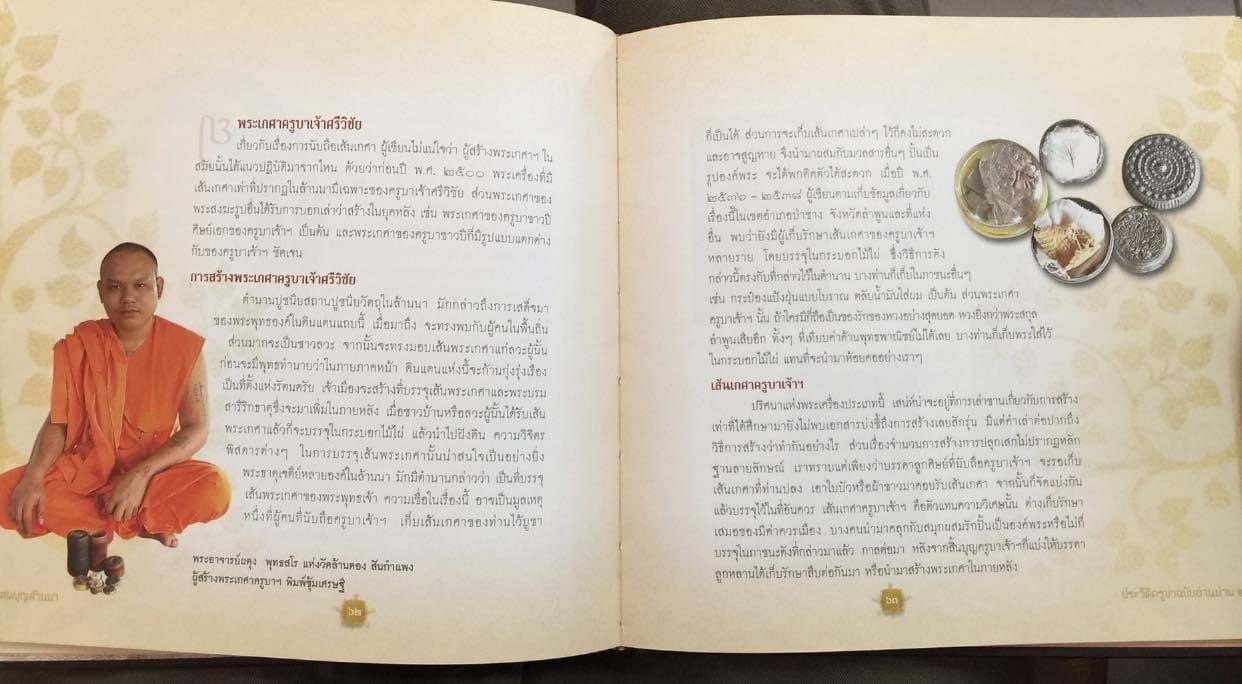 พระเกศาครูบาเจ้าศรีวิชัย
เกี่ยวกับเรื่องการนับถือเส้นเกศา ผู้เขียนไม่แน่ใจว่า ผู้สร้างพระเกศาฯ ใน
สมัยนั้นได้แนวปฏิบัติมาจากไหน ด้วยว่าก่อนปี พ.ศ. ๒๕๐๐ พระเครื่องที่มี
เส้นเกศาเท่าที่ปรากฏในล้านนามีเฉพาะของครูบาเจ้าศรีวิชัย ส่วนพระเกศาของ
พระสงฆะรูปอื่นได้รับการบอกเล่าว่าสร้างในยุคหลัง เช่น พระเกศาของครูบาขาวปี
ศิษย์เอกของครูบาเจ้าฯ เป็นต้น และพระเกศาของครูบาขาวปีก็มีรูปแบบแตกต่าง
กับของครูบาเจ้าฯ ชัดเจน
การสร้างพระเกศาครูบาเจ้าศรีวิชัย
ตำนานปูชนียสถานปูชนียวัตถุในล้านนา มักกล่าวถึงการเสด็จมา
ของพระพุทธองค์ในดินแดนแถบนี้ เมื่อมาถึง จะทรงพบกับผู้คนในพื้นถิ่น
ส่วนมากจะเป็นชาวลวะ จากนั้นจะทรงมอบเส้นพระเกศาแก่ลวะผู้นั้น
ก่อนจะมีพุทธทำนายว่าในภายภาคหน้า ดินแดนแห่งนี้จะก้านกุ่งรุ่งเรือง
เป็นที่ตั้งแห่งรัตนตรัย เจ้าเมืองจะสร้างที่บรรจุเส้นพระเกศาและพระบรม
สารีริกธาตุซึ่งจะมาเพิ่มในภายหลัง เมื่อชาวบ้านหรือลวะผู้นั้นได้รับเส้น
พระเกศาแล้วก็จะบรรจุในกระบอกไม้ไผ่ แล้วนำไปฝังดิน ความวิจิตร
พิสดารต่างๆ ในการบรรจุเส้นพระเกศานั้นน่าสนใจเป็นอย่างยิ่ง
พระธาตุเจดีย์หลายองค์ในล้านนา มักมีตำนานกล่าวว่า เป็นที่บรรจุ
เส้นพระเกศาของพระพุทธเจ้า ความเชื่อในเรื่องนี้ อาจเป็นมูลเหตุ
หนึ่งที่ผู้คนที่นับถือครูบาเจ้าฯ เก็บเส้นเกศาของท่านไว้บูชา
พระอาจารย์ผดุง พุทธสโร แห่งวัดล้านตอง สันกำแพง
ผู้สร้างพระเกศาครูบาฯ พิมพ์ซุ้มเศรษฐี
สนบุญล้านนา
๖๒
ก็เป็นได้ ส่วนการจะเก็บเส้นเกศาเปล่าๆ ไว้ก็คงไม่สะดวก
และอาจสูญหาย จึงนำมาผสมกับมวลสารอื่นๆ ปั้นเป็น
รูปองค์พระ จะได้พกติดตัวได้สะดวก เมื่อปี พ.ศ.
๒๕๓๖ - ๒๕๓๘ ผู้เขียนตามเก็บข้อมูลเกี่ยวกับ
เรื่องนี้ในเขตอำเภอป่าซาง จังหวัดลำพูนและที่แห่ง
อื่น พบว่ายังมีผู้เก็บรักษาเส้นเกศาของครูบาเจ้าฯ
หลายราย โดยบรรจุในกระบอกไม้ไผ่ ซึ่งวิธีการดัง
กล่าวนี้ตรงกับที่กล่าวไว้ในตำนาน บางท่านก็เก็บในภาชนะอื่นๆ
เช่น กระป๋องแป้งฝุ่นแบบโบราณ ตลับน้ำมันใส่ผม เป็นต้น ส่วนพระเกศา
ครูบาเจ้าฯ นั้น ถ้าใครมีก็ถือเป็นของรักของหวงอย่างสุดยอด หวงยิ่งกว่าพระสกุล
ลำพูนเสียอีก ทั้งๆ ที่เทียบค่าด้านพุทธพาณิชย์ไม่ได้เลย บางท่านก็เก็บพระใส่ไว้
ในกระบอกไม้ไผ่ แทนที่จะนำมาห้อยคออย่างเราๆ
เส้นเกศาครูบาเจ้าฯ
ปริศนาแห่งพระเครื่องประเภทนี้ เสน่ห์น่าจะอยู่ที่การเล่าขานเกี่ยวกับการสร้าง
เท่าที่ได้ศึกษามายังไม่พบเอกสารบ่งชี้ถึงการสร้างเลยสักรุ่น มีแต่คำเล่าต่อปากถึง
วิธีการสร้างว่าทำกันอย่างไร ส่วนเรื่องจำนวนการสร้างการปลุกเสกไม่ปรากฏหลัก
ฐานลายลักษณ์ เราทราบแต่เพียงว่าบรรดาลูกศิษย์ที่นับถือครูบาเจ้าฯ จะรอเก็บ
เส้นเกศาที่ท่านปลง เอาใบบัวหรือผ้าขาวมาคอบรับเส้นเกศา จากนั้นก็จัดแบ่งกัน
แล้วบรรจุไว้ในที่อันควร เส้นเกศาครูบาเจ้าฯ คือตัวแทนความวิเศษนั้น ต่างเก็บรักษา
เสมอของมีค่าควรเมือง บางคนนำมาคลุกกับสมุกผสมรักปั้นเป็นองค์พระหรือไม่ก็
บรรจุในภาชนะดังที่กล่าวมาแล้ว กาลต่อมา หลังจากสิ้นบุญครูบาเจ้าฯก็แบ่งให้บรรดา
ลูกหลานได้เก็บรักษาสืบต่อกันมา หรือนำมาสร้างพระเกศาในภายหลัง
๖๓
ประวัติครูบาฉบับอ่านม่วน